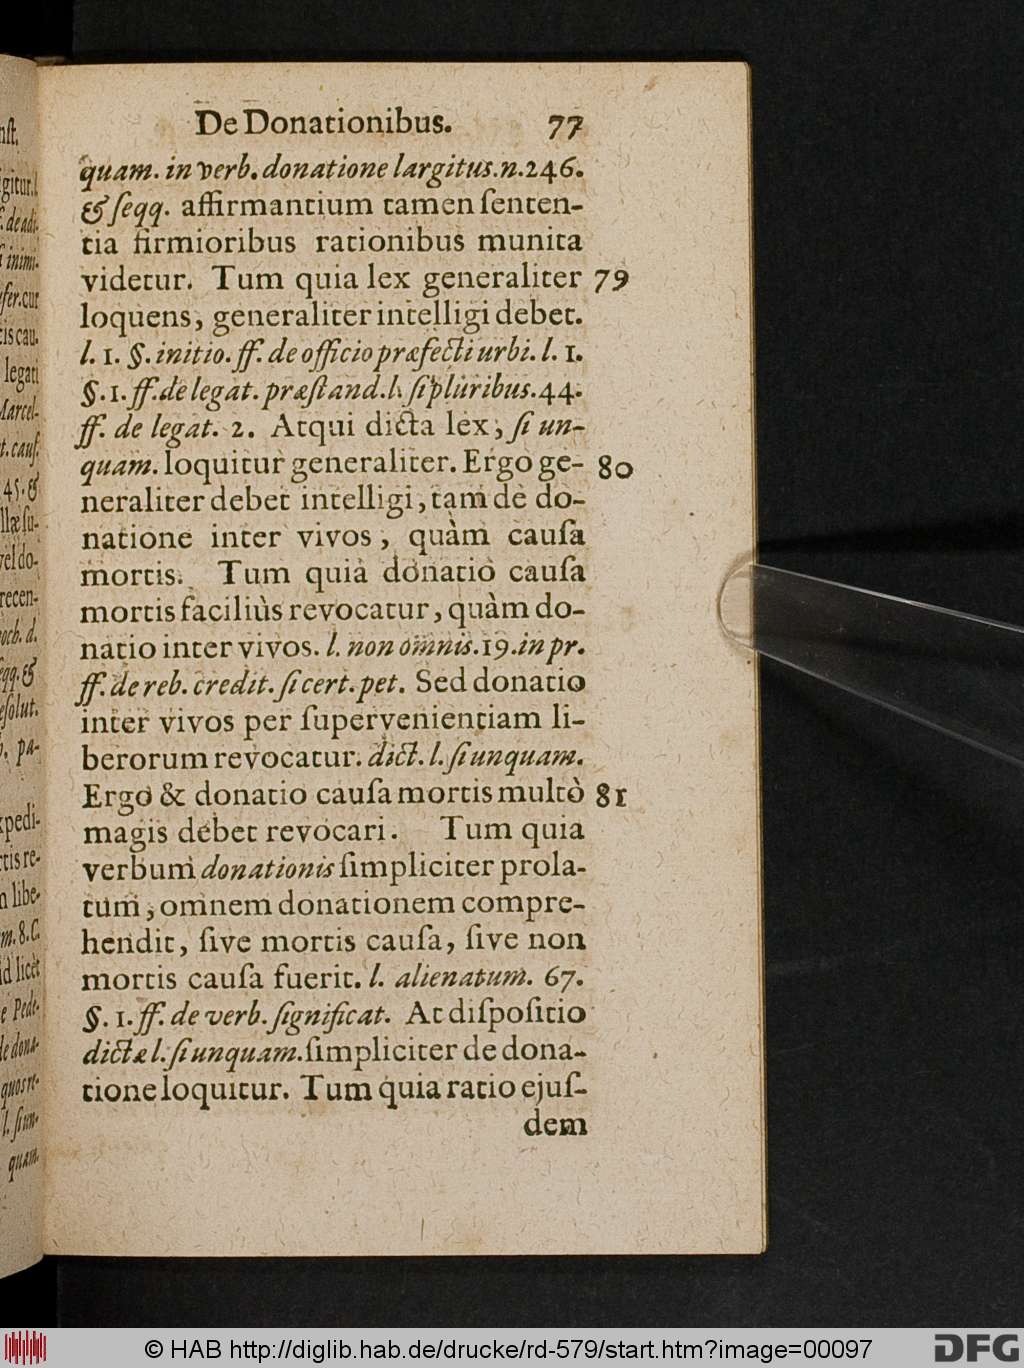 De Donationibus. 77
quam. in verb. donatione largitus. n. 246.
& ſeqq. affirmantium tamen ſenten-
tia firmioribus rationibus munita
videtur. Tum quia lex generaliter 79
loquens, generaliter intelligi debet.
l. 1. §. initio. ff. de officio præfecti urbi. l. 1.
§. 1. ff. de legat. præſtand. l. ſi pluribus. 44.
ff. de legat. 2. Atqui dicta lex, ſi un-
quam. loquitur generaliter. Ergo ge- 80
neraliter debet intelligi, tam de do-
natione inter vivos, quàm cauſa
mortis. Tum quia donatio cauſa
mortis faciliùs revocatur, quàm do-
natio inter vivos. l. non omnis. 19. in pr.
ff. de reb. credit. ſi cert. pet. Sed donatio
inter vivos per ſupervenientiam li-
berorum revocatur. dict. l. ſi unquam.
Ergo & donatio cauſa mortis multò 81
magis debet revocari. Tum quia
verbum donationis ſimpliciter prola-
tum, omnem donationem compre-
hendit, ſive mortis cauſa, ſive non
mortis cauſa fuerit. l. alienatum. 67.
§. 1. ff. de verb. ſignificat. At diſpoſitio
dictæ l. ſi unquam. ſimpliciter de dona-
tione loquitur. Tum quia ratio ejuſ-
dem
© HAB http://diglib.hab.de/drucke/rd-579/start.htm?image=00097
DFG